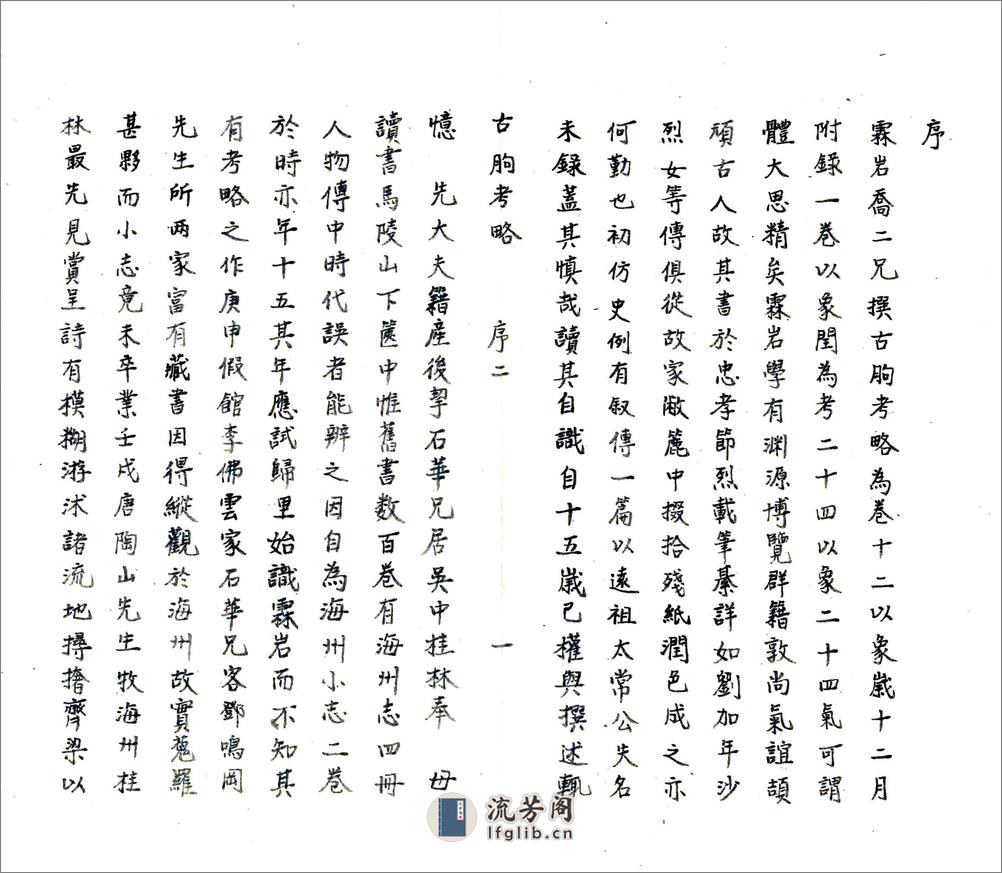 序
霖岩喬二兄撰古朐考略為卷十二以象歲十二月
附錄一卷以象閏為考二十四以象二十四氣可謂
體大思精矣霖岩學有渊源博覽群籍敦尚氣誼頡
頏古人故其書於忠孝節烈載筆綦詳如劉加年沙
烈女等傳俱從故家敝簏中掇拾殘紙潤色成之亦
何勤也初仿史例有叙傳一篇以遠祖太常公失名
未錄蓋其慎哉讀其自識自十五歲已權與撰述輒
古朐考略 序二 一
憶 先大夫籍產後挈石華兄居吳中桂林奉 母
讀書馬陵山下篋中惟舊書数百卷有海州志四冊
人物傳中時代誤者能辨之因自為海州小志二卷
於時亦年十五其年應試歸里始識霖岩而不知其
有考略之作庚申假館李佛雲家石華兄客鄧鳴岡
先生所两家富有藏書因得縱觀於海州故實蒐羅
甚夥而小志竟未卒業壬戌唐陶山先生牧海州桂
林最先見賞呈詩有模糊游沭諸流地撏撦齊梁以
流芳阁
lfglib.cn